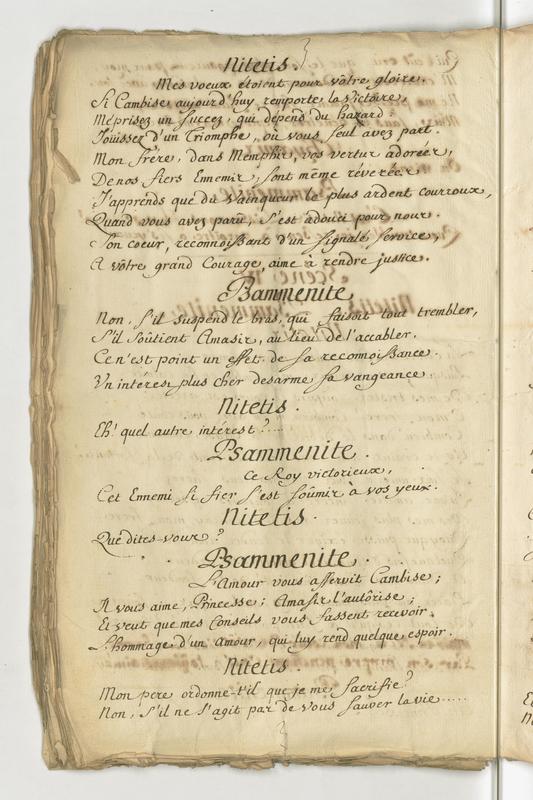 Nitetis.
Mes voeux étoient pour vôtre gloire.
Si Cambise aujourd'huy remporte la Victoire,
Méprisez un Succez, qui dépend du hazard.
Joüissez d'un Triomphe, où vous seul avez part.
Mon frere, dans Memphis, vos vertus adorées,
De nos fiers Ennemis, sont même réverées
J'apprends que du vainqueur le plus ardent courroux,
Quand vous avez parû, s'est adouci pour nous.
Son coeur, reconnoissant d'un Signalé Service,
A vôtre grand Courage, aime à rendre justice.
Psammenite
Non, S'il suspend le bras, qui faisoit tout trembler,
S'il Soûtient Amasis, au lieu de l'accabler.
Ce n'est point un effet de sa reconnoissance.
Un interest plus cher desarme sa vangeance.
Nitetis.
Eh! quel autre intérest?....
Psammenite.
Ce Roy victorieux,
Cet Ennemi Si fier S'est soûmis à vos yeux.
Nitetis.
Que dites-vous?
Psammenite.
L'Amour vous asservit Cambise;
Il vous aime, Princesse; Amasis l'autôrise;
Et veut que mes Conseils vous fassent recevoir.
L'hommage d'un Amour, qui luy rend quelque espoir.
Nitetis.
Mon pere ordonne-t'il que je me Sacrifie?
Non, S'il ne S'agit pas de vous Sauver la vie.....